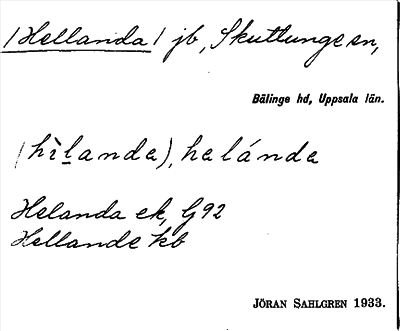 /Hellanda/ jb, Skuttunge sn,
Bälinge hd, Uppsala län.
(hìlanda), helánda
Helanda ek, G92
Hellande kb
JÖRAN SAHLGREN 1933.